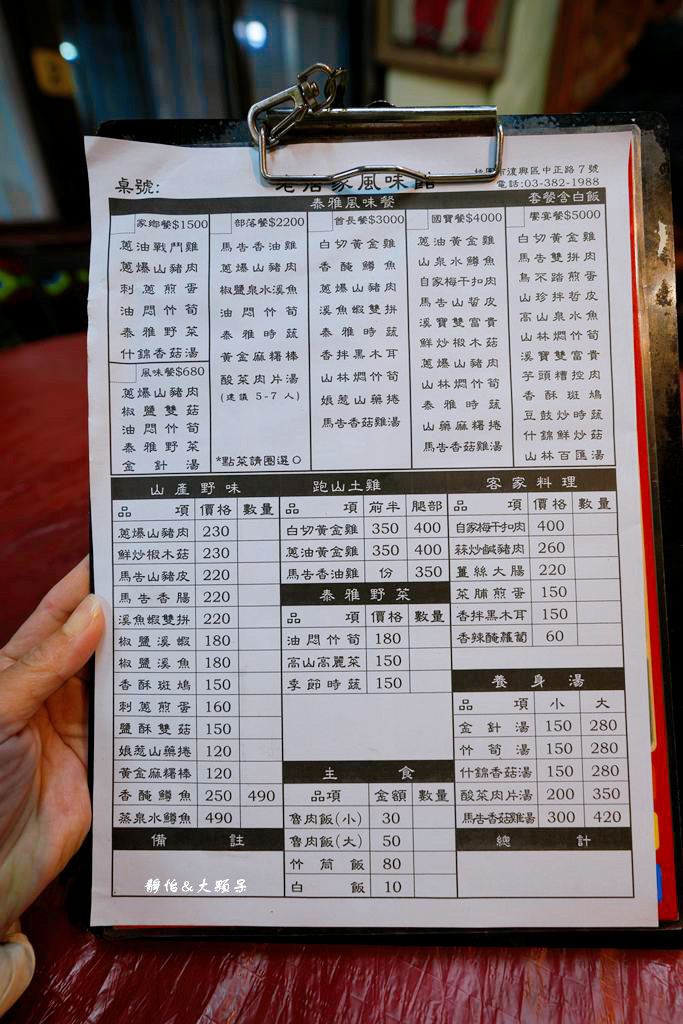 桌號:
風味館
市復興區中正路7號
電話:03-382-1988
泰雅風味餐
套餐含白飯
家鄉餐$1500
蔥油戰鬥雞
蔥爆山豬肉
刺蔥煎蛋
油悶竹筍
泰雅野菜
什錦香菇湯
風味餐$680
蔥爆山豬肉
椒鹽雙菇
油悶竹筍
泰雅野菜
金針湯
部落餐$2200
馬告香油雞
蔥爆山豬肉
椒鹽泉水溪魚
油悶竹筍
泰雅時蔬
黃金麻糬棒
酸菜肉片湯
(建議 5-7 人)
*點菜請圈選O
首長餐$3000
白切黃金雞
香醃鱒魚
蔥爆山豬肉
溪魚蝦雙拼
泰雅時蔬
香拌黑木耳
山林燜竹筍
娘惹山藥捲
馬告香菇雞湯
國寶餐$4000
蔥油黃金雞
山泉水鱒魚
自家梅干扣肉
馬告山豬皮
溪寶雙富貴
鮮炒椒木菇
蔥爆山豬肉
山林燜竹筍
泰雅時蔬
山藥麻糬捲
馬告香菇雞湯
饗宴餐$5000
白切黃金雞
馬告雙拼肉
鳥不踏煎蛋
山珍拌豬皮
高山泉水魚
山林燜竹筍
溪寶雙富貴
芋頭樓控肉
香酥斑鳩
豆豉炒時蔬
什錦鮮炒菇
山林百匯湯
山產野味
品項 價格 數量
蔥爆山豬肉 230
鮮炒椒木菇 230
馬告山豬皮 220
馬告香腸 220
溪魚蝦雙拼 220
椒鹽溪蝦 180
椒鹽溪魚 180
香酥斑鳩 150
刺蔥煎蛋 160
鹽酥雙菇 150
娘惹山藥捲 120
黃金麻糬棒 120
香醃鱒魚 250 490
蒸泉水鱒魚 490
備註
跑山土雞
品項 前半 腿部
白切黃金雞 350 400
蔥油黃金雞 350 400
馬告香油雞 份 350
泰雅野菜
品項 價格 數量
油悶竹筍 180
高山高麗菜 150
季節時蔬 150
主食
品項 金額 數量
魯肉飯(小) 30
魯肉飯(大) 50
竹筒飯 80
白飯 10
客家料理
品項 價格 數量
自家梅干扣肉 400
蒜炒鹹豬肉 260
薑絲大腸 220
菜脯煎蛋 150
香拌黑木耳 150
香辣醃蘿蔔 60
養身湯
品項 小 大
金針湯 150 280
竹筍湯 150 280
什錦香菇湯 150 280
酸菜肉片湯 200 350
馬告香菇雞湯 300 420
總計
靜怡&大顆呆